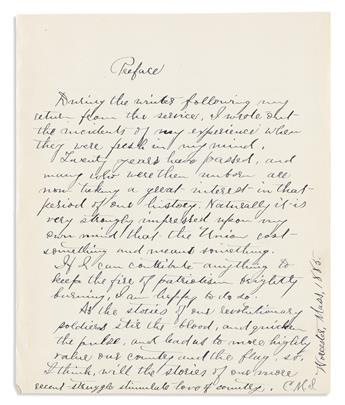 Preface
During the winter following my
return from the service, I wrote out
the incidents of my experience when
they were fresh in my mind.
Twenty years have passed, and
many who were then unborn are
now taking a great interest in that
period of our history. Naturally it is
very strongly impressed upon my
own mind that the Union cost
something and means something.
If I can contribute anything to
keep the fire of patriotism brightly
burning, I am happy to do so.
As the stories of our revolutionary
soldiers stir the blood, and quicken
the pulse, and lead us to more highly
value our country and the flag, so,
I think, will the stories of our more
recent struggle stimulate love of country. C.M.S.
Worcester, Mass, 1885.